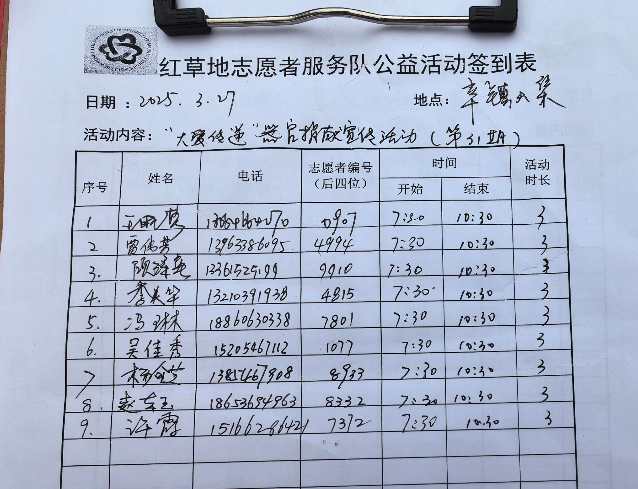 红草地志愿者服务队公益活动签到表
日期：2025.3.27 地点：辛镇大集
活动内容："大爱传递"器官捐献宣传活动（第31期）
序号 姓名 电话 志愿者编号（后四位） 时间 开始 结束 活动时长
1 0907 7:30 10:30 3
2 贾伟芳 13963386095 4994 7:30 10:30 3
3. 13361525199 9910 7:30 10:30 3
4. 李美华 13210391938 4815 7:30 10:30 3
5. 冯琳林 18860630338 7801 7:30 10:30 3
6. 吴佳秀 15205467112 1077 7:30 10:30 3
7 8933 7:30 10:30 3
8. 赵东玉 18653694963 8332 7:30 10:30 3
9. 许霞 15166286421 7372 7:30 10:30 3